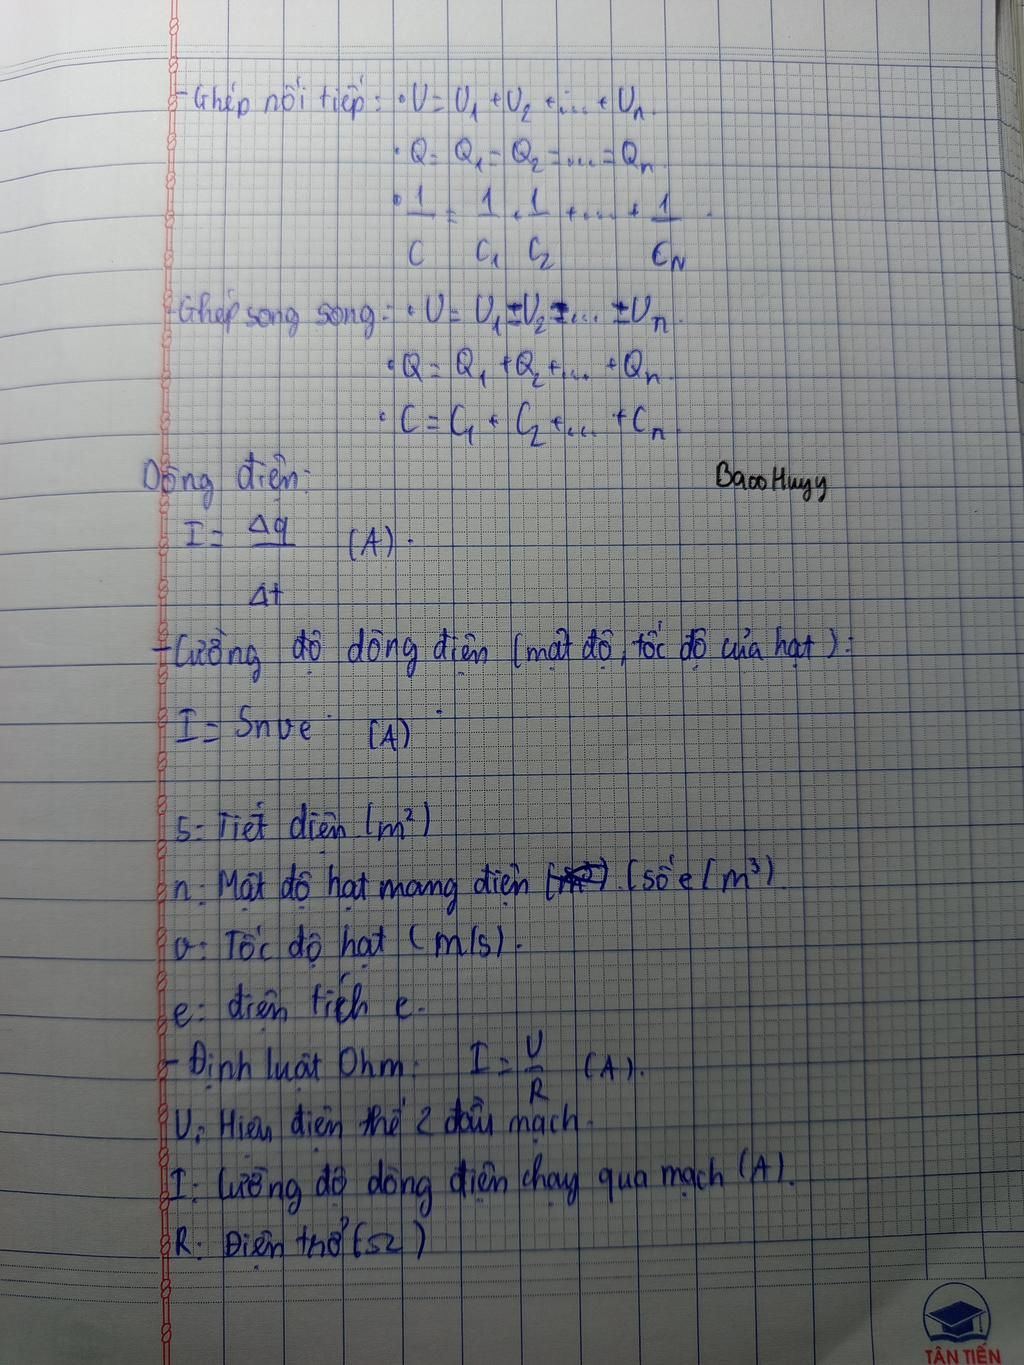 - Ghép nối tiếp: • U = U₁ + U₂ + ... + Uₙ.
• Q = Q₁ = Q₂ = ... = Qₙ.
• 1/C = 1/C₁ + 1/C₂ + ... + 1/C_N.
- Ghép song song: • U = U₁ = U₂ = ... = Uₙ.
• Q = Q₁ + Q₂ + ... + Qₙ.
• C = C₁ + C₂ + ... + Cₙ.
Dòng điện:
BaooHuyy
I = Δq/Δt (A).
- Cường độ dòng điện (mật độ, tốc độ của hạt):
I = Snve (A)
S: Tiết diện (m²)
n: Mật độ hạt mang điện (số e/m³).
v: Tốc độ hạt (m/s).
e: điện tích e.
- Định luật Ohm: I = U/R (A).
U: Hiệu điện thế 2 đầu mạch.
I: Cường độ dòng điện chạy qua mạch (A).
R: Điện thở (Ω)
TÂN TIẾN